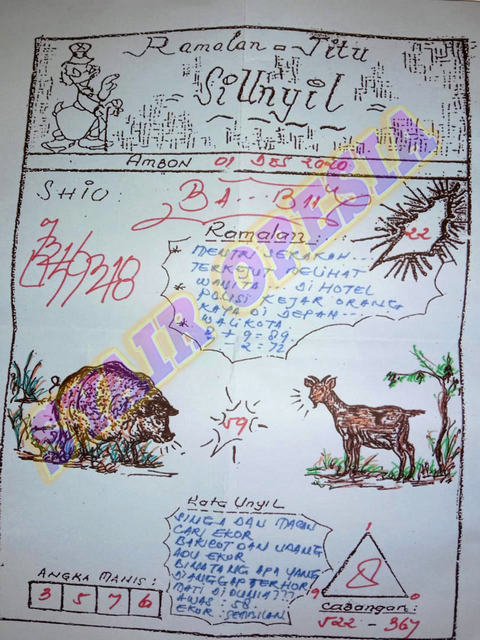 Ramalan = Titu
Si Unyil
AMBON 01 DES 2020
SHIO:
BA..BII
22
Ramalan
MENTRI SERAKAH..
TERKEJUT MELIHAT
WANITA DI HOTEL
POLISI KEJAR ORANG
KAYA DI DEPAN..
WALIKOTA
8 + 9 = 89
2 = 72
59
Kata Unyil
SINGA DAN MACAN
CARI EKOR
BARITOT DAN UDANG
ADU EKOR
BINATANG APA YANG
DIANGGAP TERHOR
MATI DI DUNIA???
AWAS : 58
EKOR : SEMBILAN
ANGKA MANIS:
3 5 7 6
1
8
9 0
CABANGAN:
522 - 367